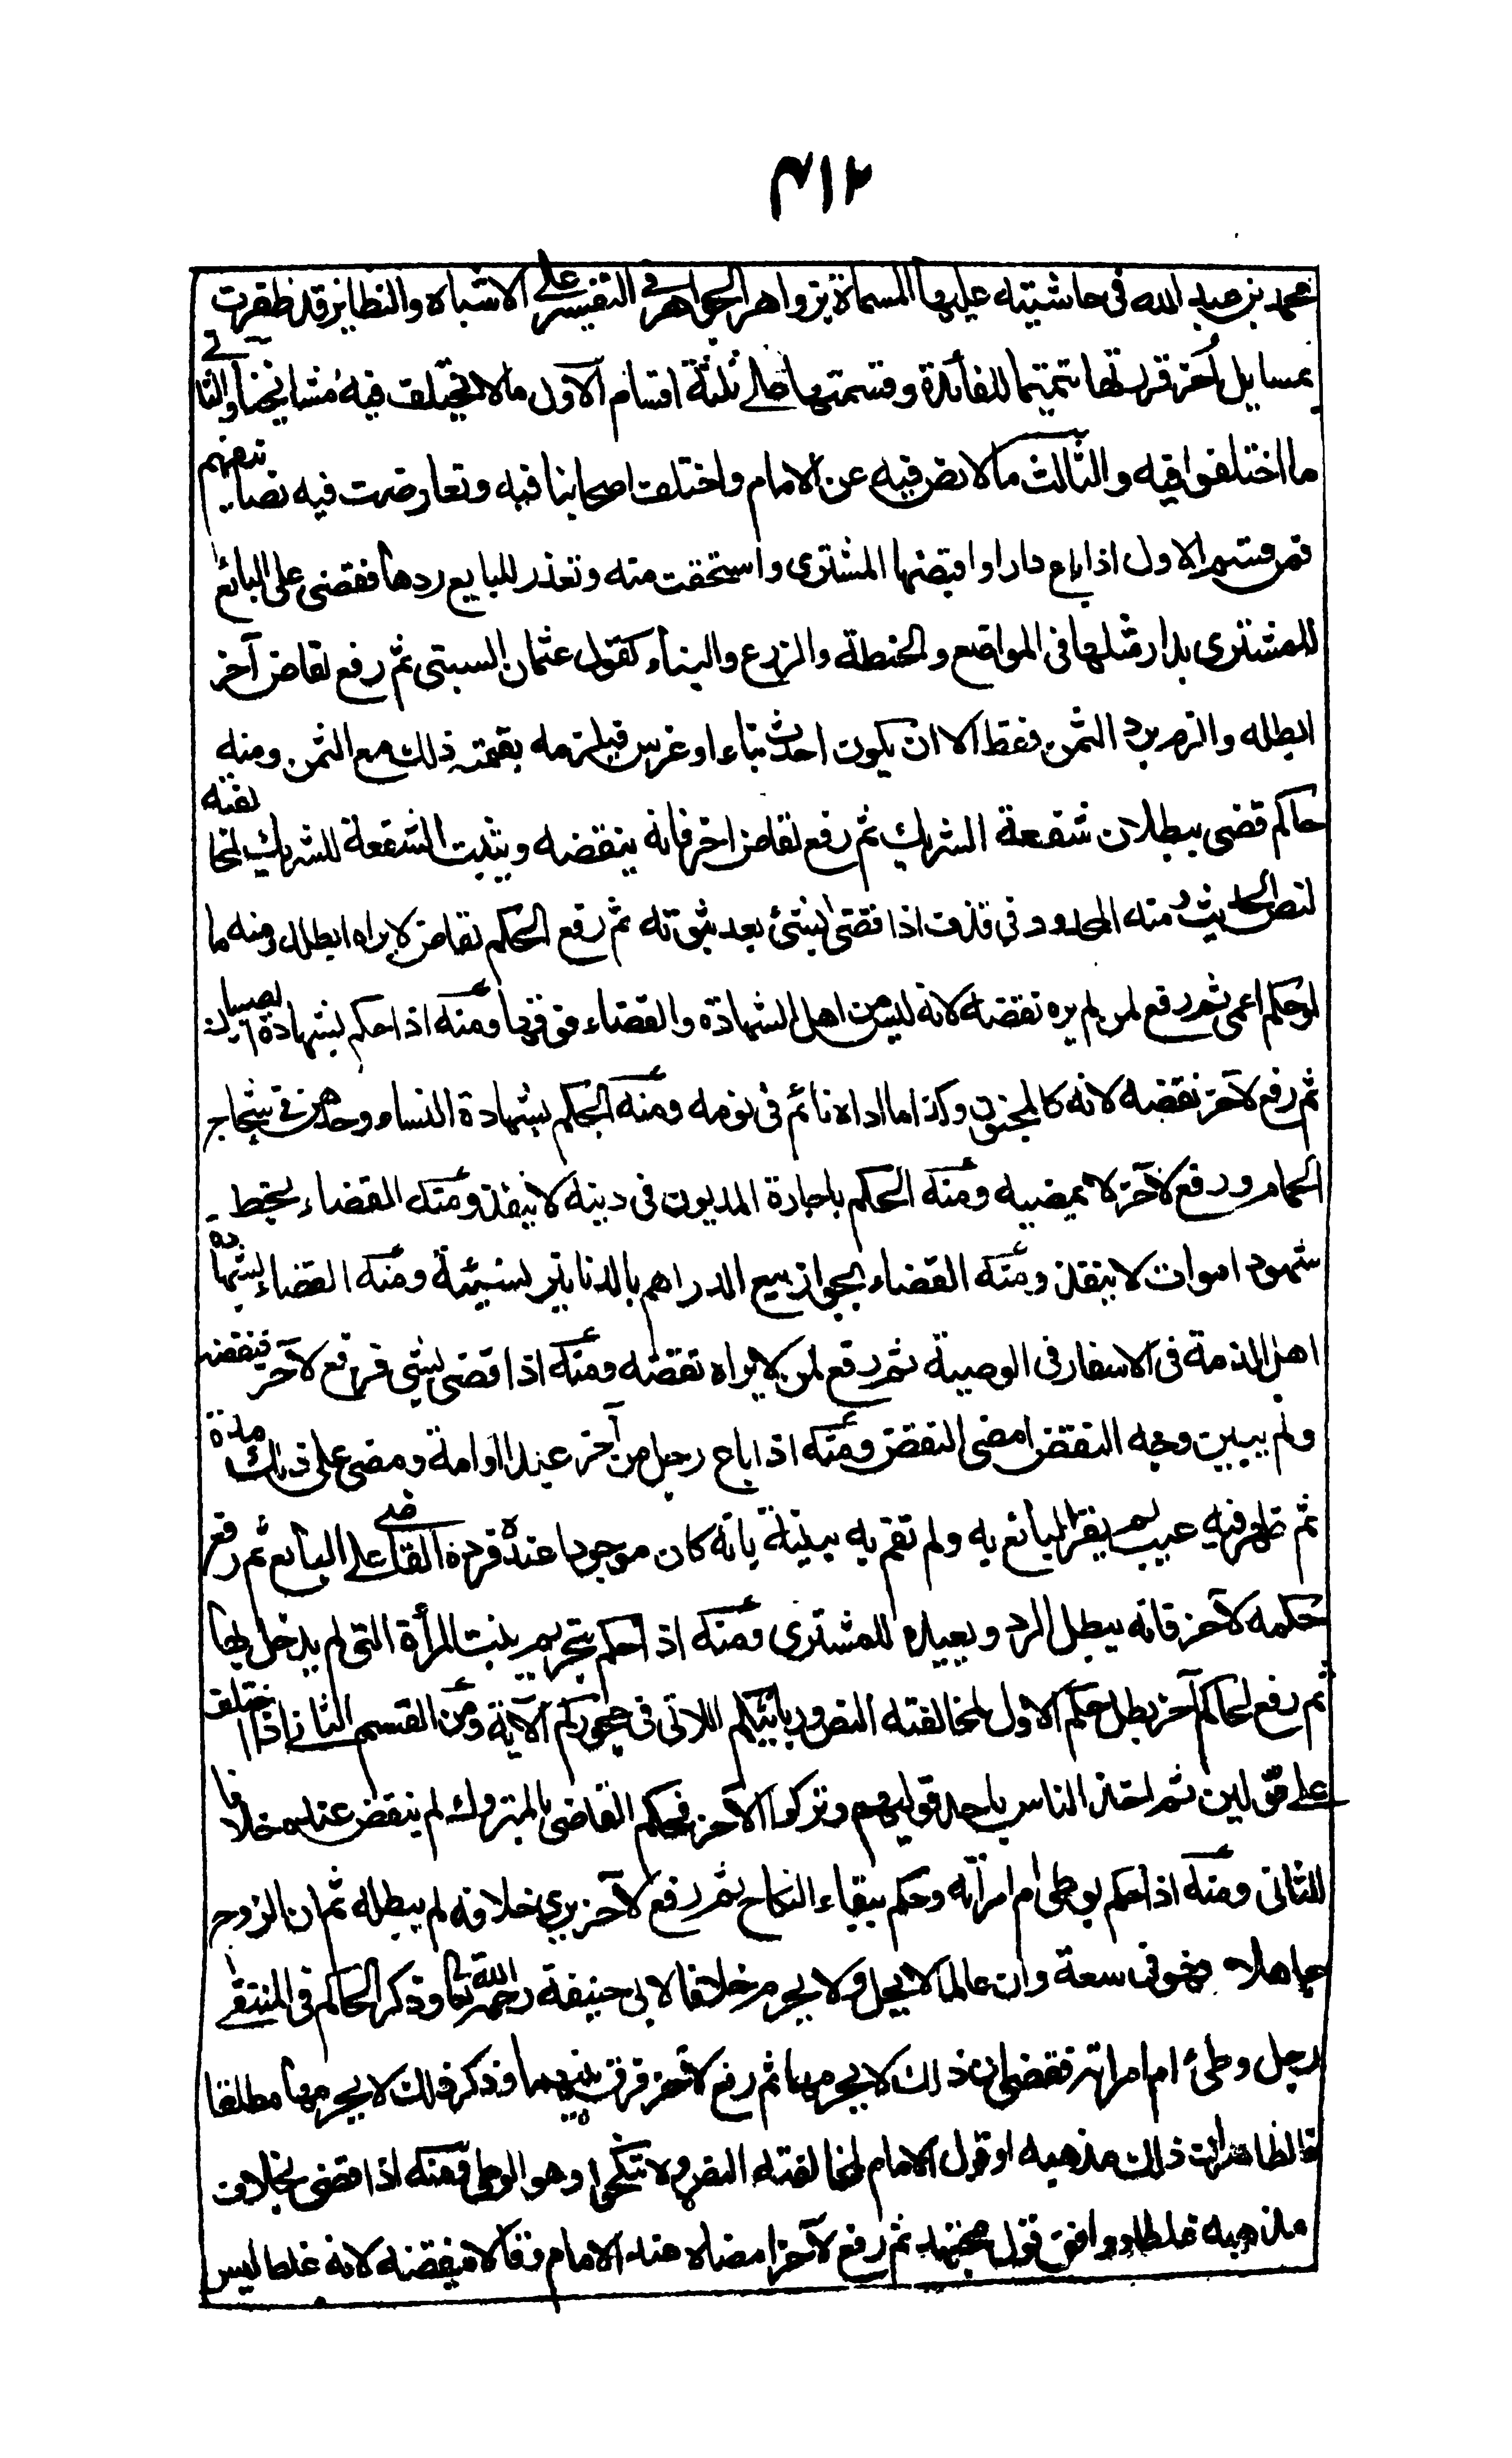 ٣١٢
محمد بن عبد الله فى حاشيته عليها المسماة بزواهر الجواهر فى التفسير على الاشباه والنظاير قد ظفرت
بمسايل آخر قررتها تتميتما للفائدة وقسمتها الى ثلثة اقسام الآول ما لا يختلف فيه مشايخنا والثانى
ما اختلفوا فيه والثالث ما لا نص فيه عن الامام واختلف اصحابنا فيه وتعارضت فيه تصانيفهم
فمن قسم الاول اذا باع دارا واقبضها المشترى واستحقت منه وتعذر للبايع ردها فقضى على البائع
للمشترى بدار مثلها فى المواضع والخطة والزرع والبناء كقول عثمان السبتى ثم رفع لقاض آخر
ابطله والزم برد الثمن فقط الا ان يكون احدث بناء او غرس فيلزمه بقيمته ذلك مع الثمن ومنه
حاكم قضى ببطلان شفعة الشريك ثم رفع لقاض اخر فانه ينقضه ويثبت الشفعة للشريك لمخالفته
لنص الحديث ومنه المحدود فى قذف اذا قضى بشئ بعد ثبوته ثم رفع الحكم لقاض لا يراه ابطله ومنه ما
لو حكم اعمى ثم رفع لمن لم يره نقضه لانه ليس من اهل الشهادة والقضاء فوقها ومنه اذا حكم بشهادة الصبيان
ثم رفع لآخر نقضه لانه كالمجنون وكذا ما اداه نائم فى نومه ومنه الحكم بشهادة النساء وحدهن فى شجاج
الحمام ورفع لآخر لا يمضيه ومنه الحكم باجارة المديون فى دينه لا ينفذ ومنه القضاء بخط
شهود اموات لا ينفذ ومنه القضاء بجواز بيع الدراهم بالدنانير نسيئة ومنه القضاء بشهادة
اهل الذمة فى الاسفار فى الوصية ثم رفع لمن لا يراه نقضه ومنه اذا قضى بشئ فرفع لآخر فنقضه
ولم يبين وجه النقض امضى النقض ومنه اذا باع رجل من آخر عبدا او امة ومضى على ذلك مدة
ثم ظهر فيه عيب لم يقر البائع به ولم تقم به بينة بانه كان موجودا عنده فرده القاضى على البائع ثم رفع
حكمه لآخر فانه يبطل الرد ويعيده للمشترى ومنه اذا حكم بتحريم بنت المرأة التى لم يدخل بها
ثم رفع لحاكم آخر بطل حكم الاول لمخالفته النص وربائبكم اللاتى فى حجوركم الآية ومن القسم الثانى اذا اختلف
على قولين ثم اخذ الناس باحد قوليهم وتركوا الآخر فحكم القاضى بالمتروك لم ينقض عنده خلافا
للثانى ومنه اذا حكم بوطى ام امرأته وحكم ببقاء النكاح ثم رفع لآخر يرى خلافه لم يبطله ثم ان الزوج
جاهلا فهو فى سعة وان عالما لا يحل ولا يحرم خلافا لابى حنيفة رحمه الله تعا وذكر الحاكم فى المنتقى
رجل وطئ ام امراته فقضى ان ذلك لا يحرمها ثم رفع لآخر فرق بينهما وذكر ذلك لا يحرمها مطلقا
فالظاهر ان ذلك مذهبه او قول الامام لمخالفته النص ولا تنكحوا وهو الوطى ومنه اذا قضى بخلاف
مذهبه غلطا ووافق قول مجتهد ثم رفع لآخر امضاه عند الامام وقالا ينقضه لانه غلط ليس